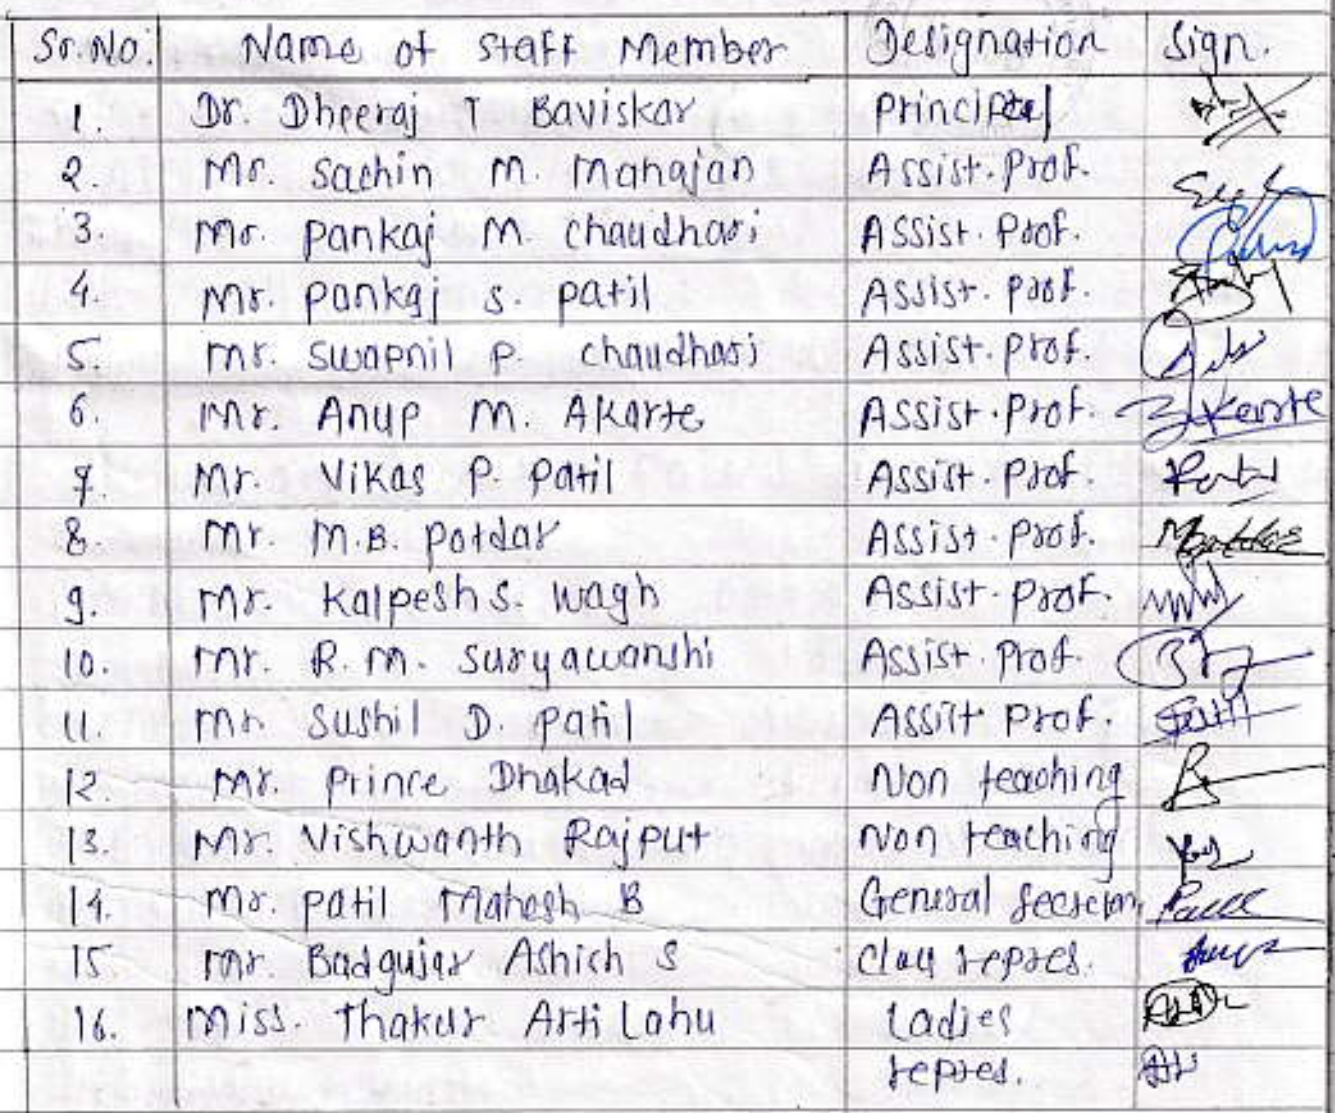 Sr.No. Name of Staff Member Designation Sign.
1. Dr. Dheeraj T Baviskar Principal
2. Mr. Sachin M. Mahajan Assist. Prof.
3. Mr. Pankaj M. Chaudhari Assist. Prof.
4. Mr. Pankaj S. Patil Assist. Prof.
5. Mr. Swapnil P. Chaudhari Assist. Prof.
6. Mr. Anup M. Akarte Assist. Prof.
7. Mr. Vikas P. Patil Assist. Prof.
8. Mr. M.B. Potdar Assist. Prof.
9. Mr. Kalpesh S. Wagh Assist. Prof.
10. Mr. R. M. Suryawanshi Assist. Prof.
11. Mr. Sushil D. Patil Assist. Prof.
12. Mr. Prince Dhakad Non teaching
13. Mr. Vishwanth Rajput Non teaching
14. Mr. Patil Mahesh B General
15 Mr. Badgujar Ashish S Class repres.
16. Miss. Thakur Arti Lahu Ladies
repres.